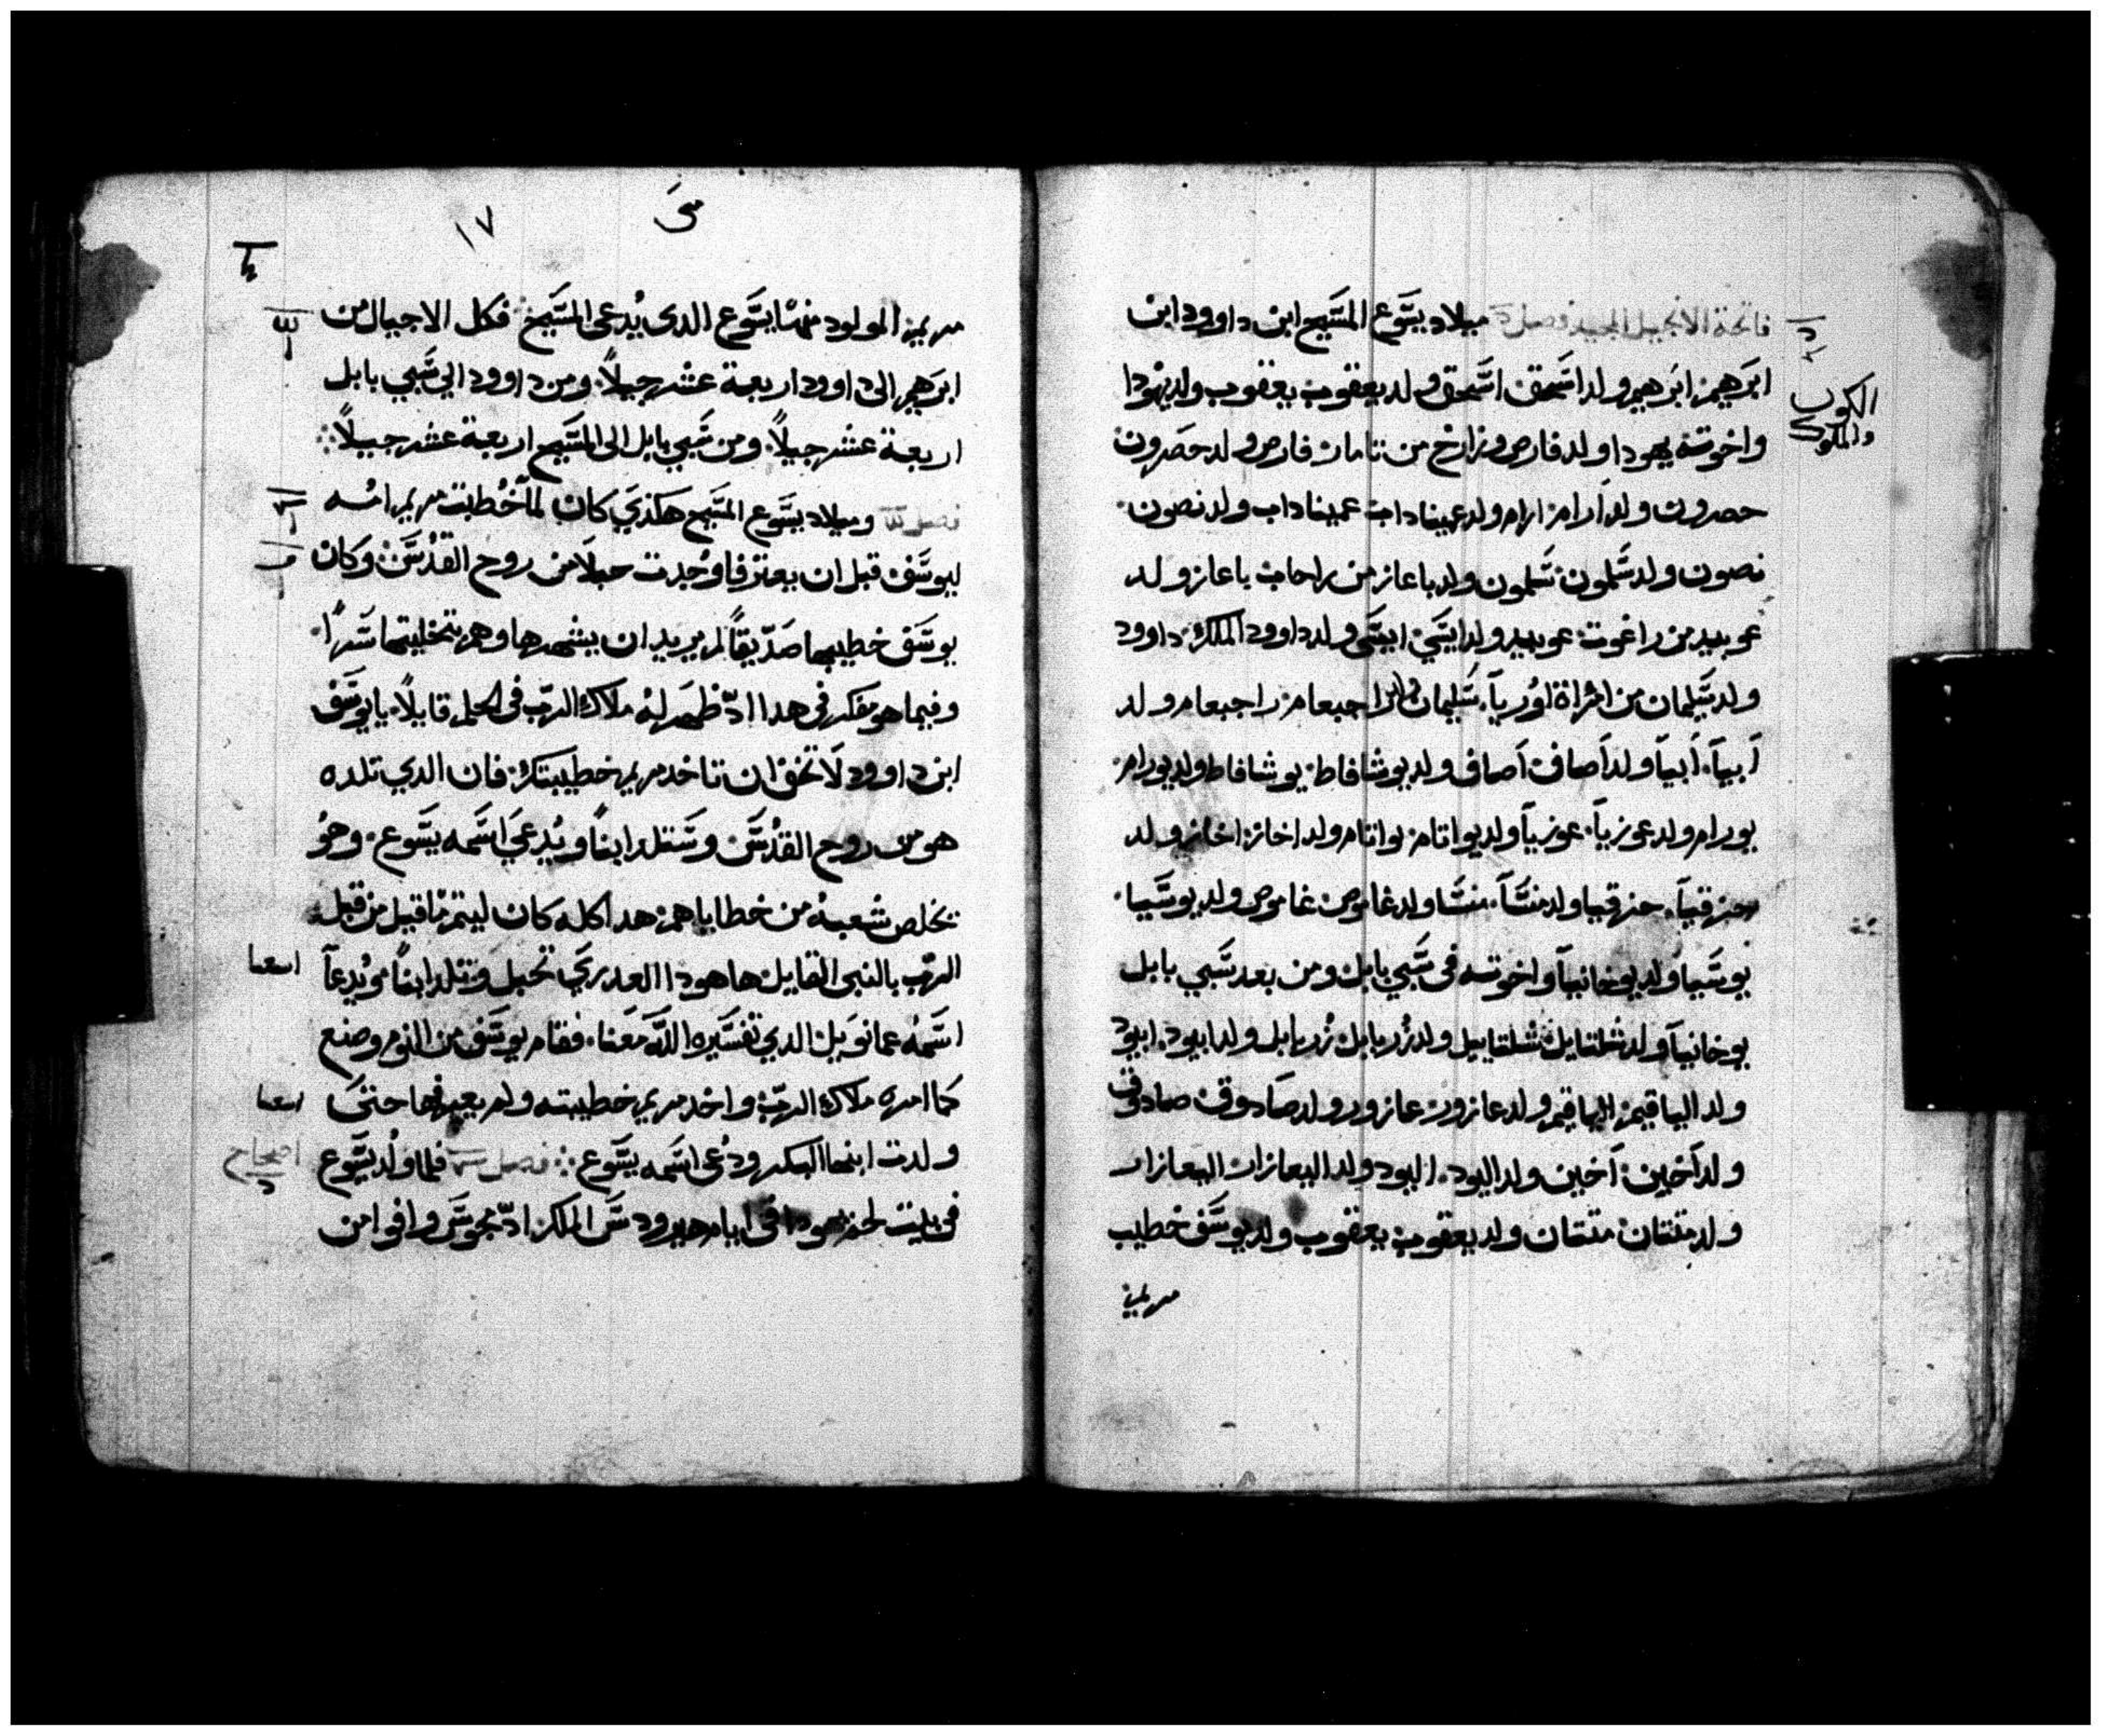 فاتحة الانجيل المجيد فصل ميلاد يسَوع المسَيح ابن داوود ابن
ابرَهيم ابرَهيم ولد اسَحق اسَحق ولد يعقوب يعقوب ولد يهُودا
الكون
والملوك
واخوته يهودا ولد فارص وزارح من تامار فارص ولد حَصرون
حصرون ولد اَرام ارام ولد عميناداب عميناداب ولد نصون
نصون ولد سَلمون سَلمون ولد باعاز من راحاب باعاز ولد
عوبيد من راغوت عوبيد ولد ايسَى ايسَى ولد داوود الملك داوود
ولد سَليمان من امراة اوُرياَ سَليمان ولد راجبعام راجبعام ولد
اَبياَ اَبياَ ولد اَصاف اَصاف ولد يوشافاط يوشافاط ولد يورام
يورام ولد عوزياَ عوزياَ ولد يواتام يواتام ولد اخاز اخاز ولد
حزقياَ حزقيا ولد منسَاَ منسَا ولد غاموص غاموص ولد يوسَيا
يوسَيا ولد يوخانياَ واخوته فى سَبي بابل ومن بعد سَبي بابل
يوخانياَ ولد شلتايل شلتاييل ولد زُربابل زُربابل ولد ابيود ابيود
ولد الياقيم الياقيم ولد عازور عازور ولد صَادوق صادوق
ولد اَخين اَخين ولد اليود اليود ولد اليعازار اليعازار
ولد متقان متقان ولد يعقوب يعقوب ولد يوسَف خطيب
مريم
متىَ
١٧
مريم المولود منها يسَوع الدى يُدعى المسَيح فكل الاجيال من
ابرَهيم الى داوود اربعة عشر جيلاً ومن داوود الي سَبي بابل
اربعة عشر جيلاً ومن سَبي بابل الى المسَيح اربعة عشر جيلاً
فصل وميلاد يسَوع المسَيح هَكذيَ كان لماَ خُطبت مريم امُه
ليوسَف قبل ان يعترفا وُجدت حبلاَ من روح القدُسَ وكان
يوسَف خطيبها صَدّيقاً لم يريد ان يشهرها وهم بتخليتها سَراً
وفيما هو مفكر فى هدا ادّ ظهَر لهُ ملاك الربّ فى الحلم قايلاً يا يوسَف
ابن داوود لاَ تخف ان تاخد مريم خطيبتك فان الدي تلده
هو من روح القدُسَ وسَتلد ابناً ويُدعيَ اسَمه يسَوع وهوُ
يخلص شعبهُ من خطاياهم هدا كله كان ليتم ماَ قيل من قبل
الربّ بالنبى القايل ها هودا العدريَ تحبل وتلد ابناً ويُدعاَ
اشعيا
اسَمهُ عمانويَل الدي تفسَيره اللّه معَنا فقام يوسَف من النوم وصنع
كما امره ملاك الربّ واخد مريم خطيبته ولم يعرفها حتىَ
ولدت ابنها البكر ودُعى اسَمه يسَوع فصل فلما ولُد يسَوع
اصحاح
فى بيت لحم يهودا فى ايام هيرودسَ الملك ادّ مجوسَ وافوا من